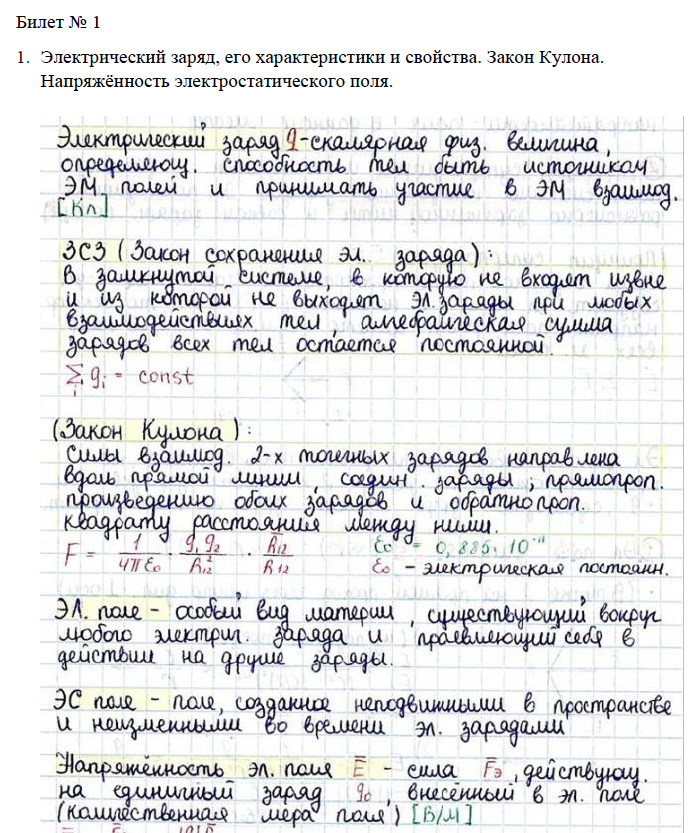 Билет № 1
1. Электрический заряд, его характеристики и свойства. Закон Кулона.
Напряжённость электростатического поля.
Электрический заряд q-скалярная физ. величина,
определяющ. способность тел быть источникам
ЭМ полей и принимать участие в ЭМ взаимод.
[Кл]
ЗСЗ (Закон сохранения эл. заряда):
В замкнутой системе, в которую не входят извне
и из которой не выходят эл. заряды при любых
взаимодействиях тел, алгебраическая сумма
зарядов всех тел остается постоянной.
∑ qᵢ = const
i
(Закон Кулона):
Силы взаимод. 2-х точечных зарядов направлена
вдоль прямой линии, соедин. заряды; прямопроп.
произведению обоих зарядов и обратнопроп.
квадрату расстояния между ними.
F = 1/4πε₀ · q₁q₂/R₁₂² · R̄₁₂/R₁₂ ε₀ = 0,885·10⁻¹¹
ε₀ - электрическая постоянн.
Эл. поле - особый вид материи, существующий вокруг
любого электрич. заряда и проявляющий себя в
действии на другие заряды.
ЭС поле - поле, созданное неподвижными в пространстве
и неизменными во времени эл. зарядами
Напряжённость эл. поля Ē - сила F̄э, действующ.
на единичный заряд q₀, внесённый в эл. поле
(количественная мера поля) [В/м]